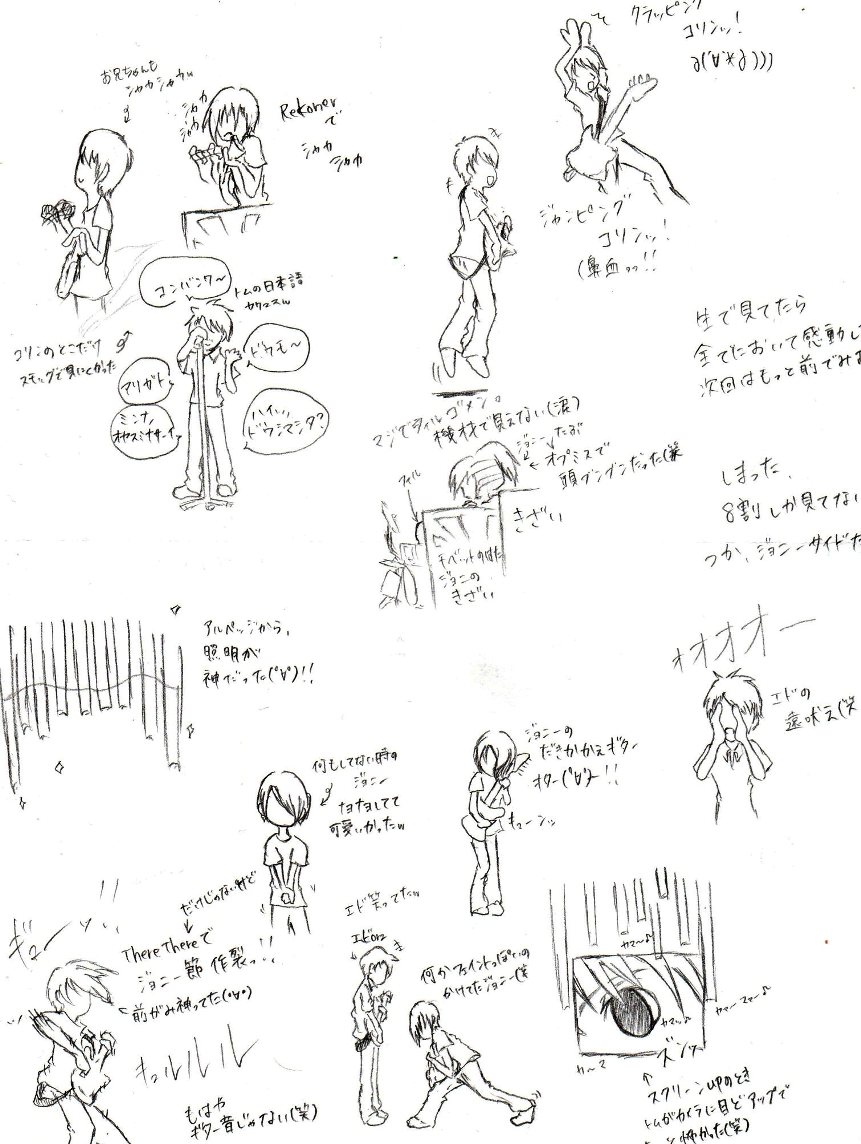 お兄ちゃんも
シャカシャカw
シャカ
シャカ
シャカ
Rekonerで
シャカ
シャカ
クラッピング
コリンッ!
ジャンピング
コリンッ!
(鼻血っっ!!
コンバンワ〜
トムの日本語
ドウモ〜
アリガト
ミンナ、
オヤスミナサーイ
ハイッ、
ドウシマシタ?
コリンのとこだけ
スモッグで見にくかった
生で見てたら
全てにおいて感動し
次回はもっと前でみ
マジでフィルゴメン。
機材で見えない(涙)
フィル
ジョニーたぶ
←オプミスで
頭ブンブンだった(笑
きざい
チベットのはた
ジョニの
きざい
しまった、
8割しか見てない
つか、ジョニーサイドだ
アルペッジから、
照明が
神だった(°∀°)!!
オオオオー
エドの
遠吠え(笑
ジョニーの
だきかかえギター
キューンッ
何もしてない時の
ジョニー
ナヨナヨしてて
可愛いかったw
だけじゃないけど
ギューンッ!!
ThereThereで
ジョニー節作裂っ!!
←前がみ神ってた(°∀°)
キュルルル
もはや
ギター音じゃない(笑)
エド笑ってたw
エドorz
何かフェイントっぽいの
かけてたジョニー(笑
カマ〜♪
カマッ♪
カマーマァー♪
カ〜マ
ズンッ
スクリーンupのとき
トムがカメラに目どアップで
怖かった(笑)